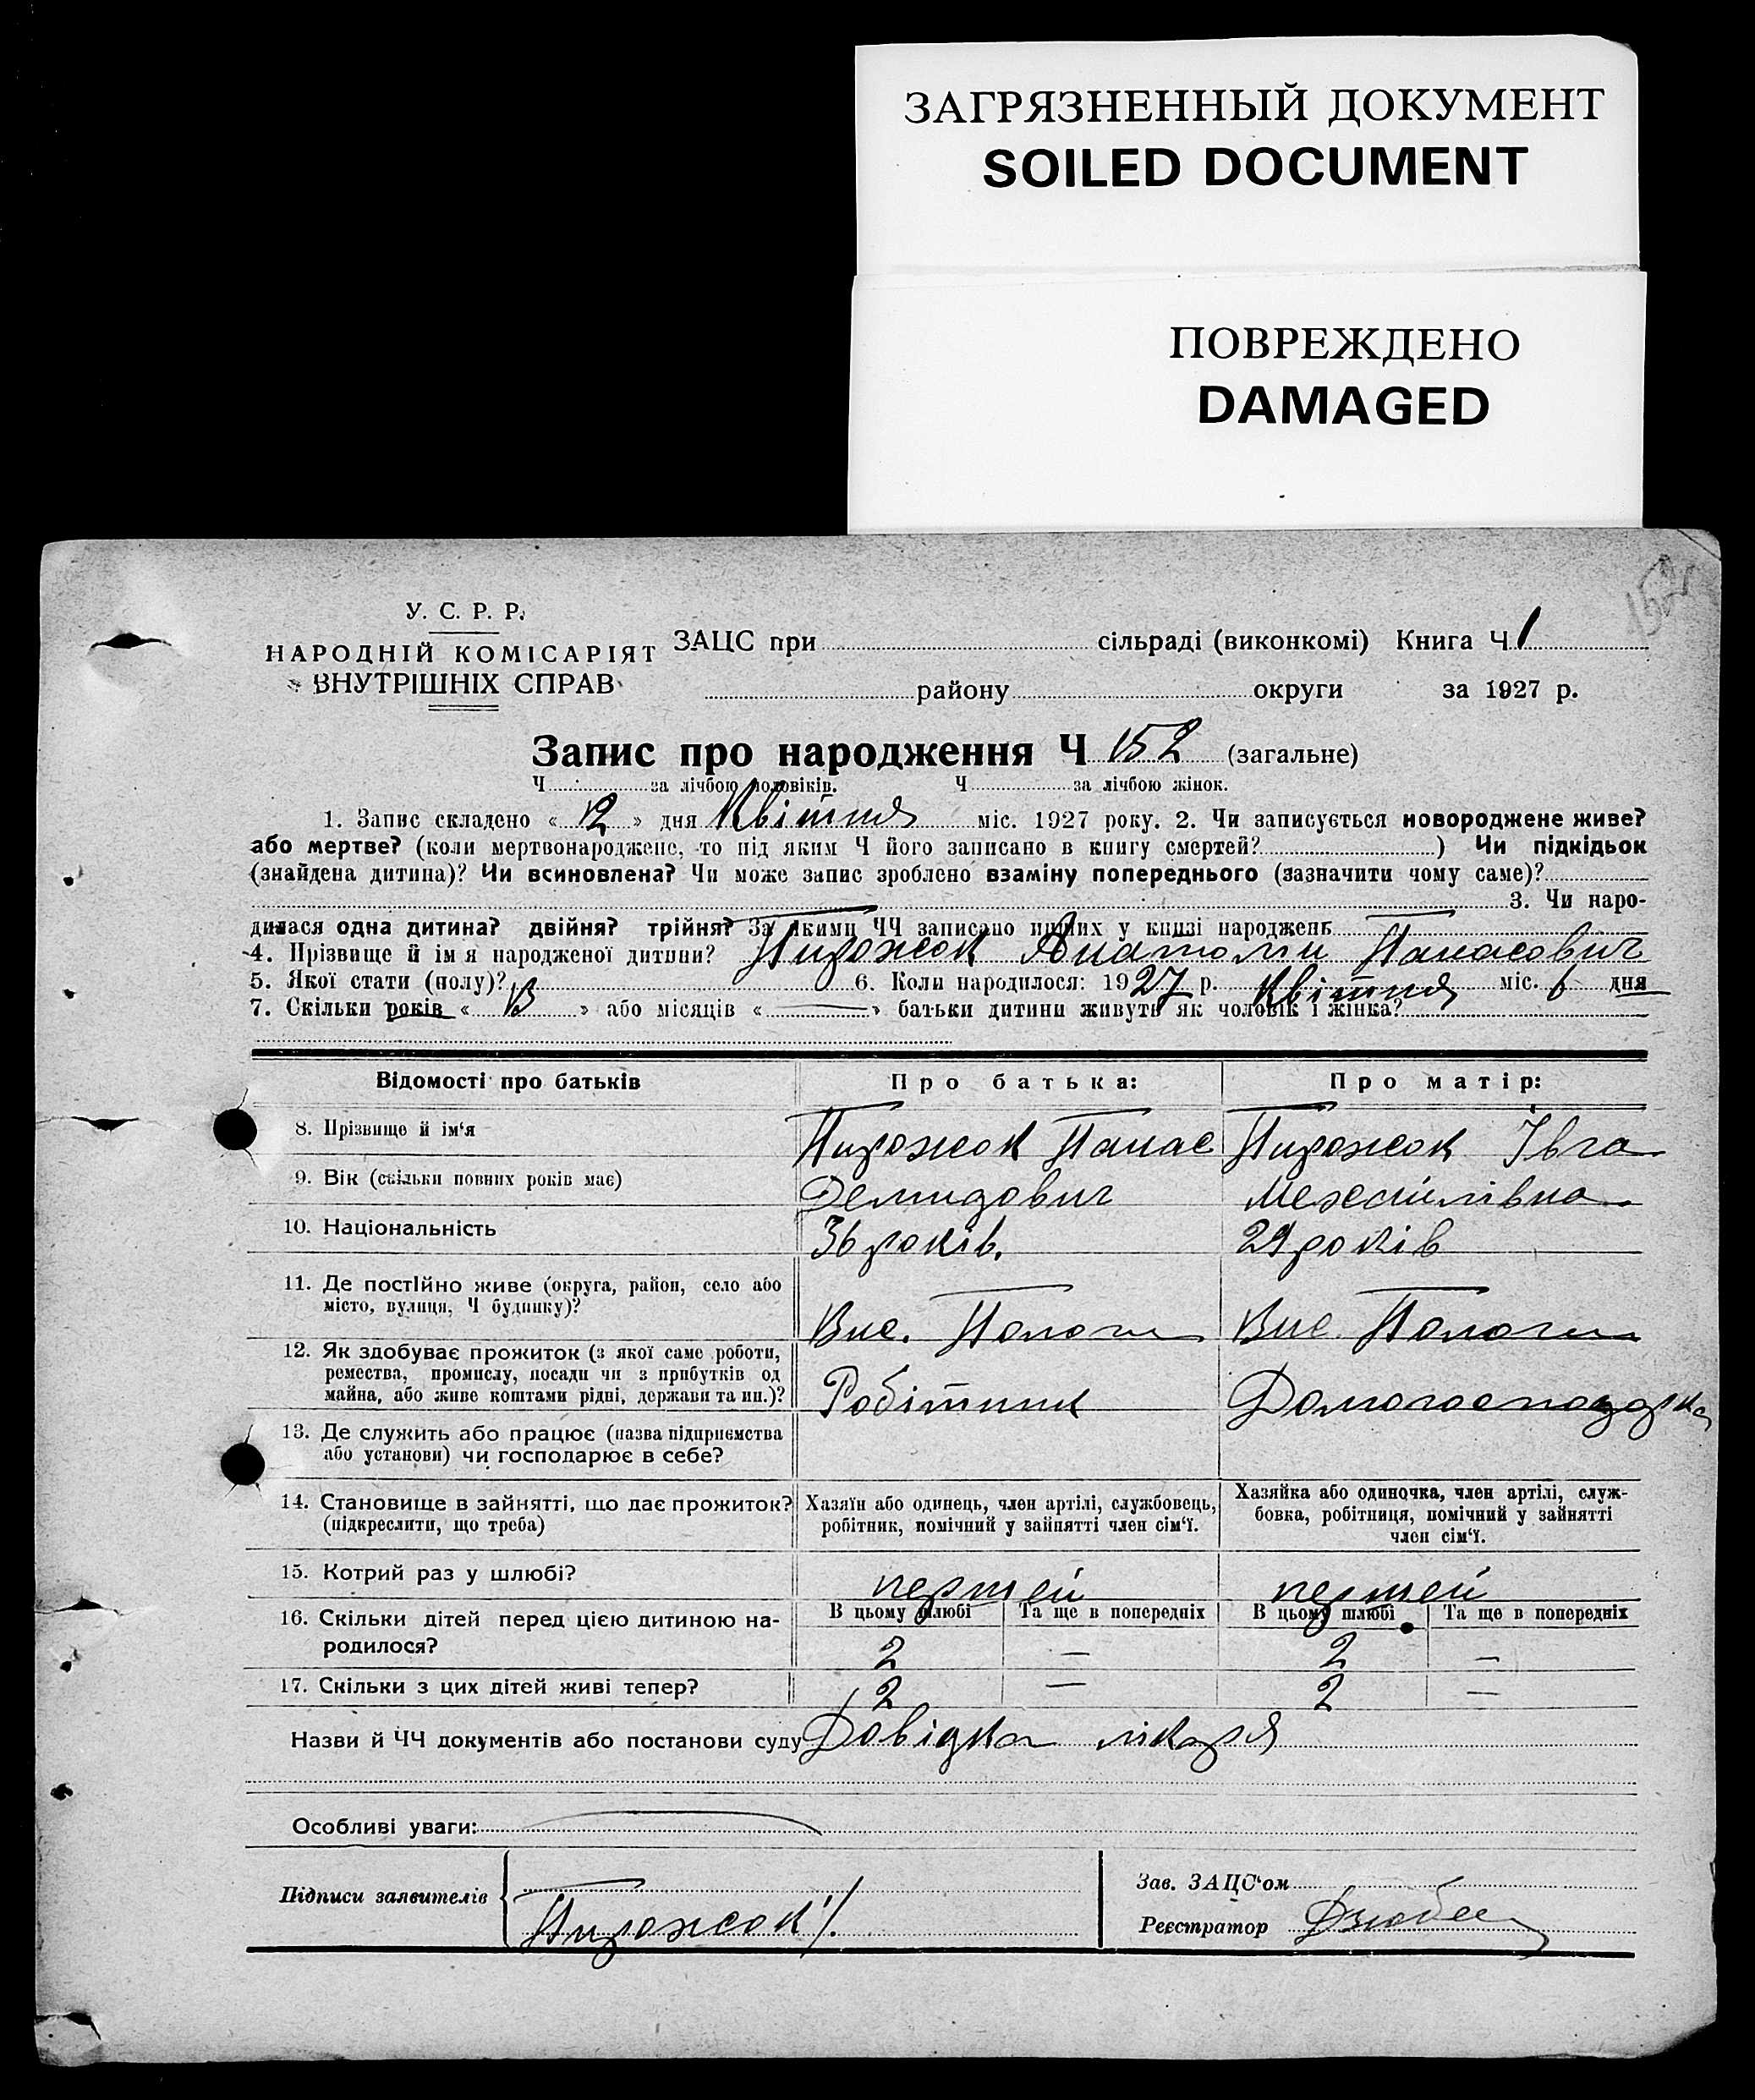 ЗАГРЯЗНЕННЫЙ ДОКУМЕНТ
SOILED DOCUMENT
ПОВРЕЖДЕНО
DAMAGED
152
У. С. Р. Р.
НАРОДНІЙ КОМІСАРІЯТ
ВНУТРІШНІХ СПРАВ
ЗАЦС при сільраді (виконкомі) Книга Ч 1
району округи за 1927 р.
Запис про народження Ч 152 (загальне)
Ч за лічбою чоловіків. Ч за лічбою жінок.
1. Запис складено « 12 » дня Квітня міс. 1927 року. 2. Чи записується новороджене живе?
або мертве? (коли мертвонароджене, то під яким Ч його записано в книгу смертей? ) Чи підкідьок
(знайдена дитина)? Чи всиновлена? Чи може запис зроблено взаміну попереднього (зазначити чому саме)?
3. Чи наро-
дилася одна дитина? двійня? трійня? За якими ЧЧ записано инших у книзі народжень
4. Прізвище й ім я народженої дитини? Пирожок Анатолии Панасович
5. Якої стати (полу)? 6. Коли народилося: 1927 р. Квітня міс. 6 дня
7. Скільки років « 13 » або місяців « — » батьки дитини живуть як чоловік і жінка?
Відомості про батьків Про батька: Про матір:
8. Прізвище й ім'я Пирожок Панас Пирожок Івга
9. Вік (скільки повних років має) Демидович
10. Національність 36 років. 29 років
11. Де постійно живе (округа, район, село або
місто, вулиця, Ч будинку)? Вис. Пологи Вис. Пологи
12. Як здобуває прожиток (з якої саме роботи,
ремества, промислу, посади чи з прибутків од
майна, або живе коштами рідні, держави та ин.)? Робітник Домогосподарка
13. Де служить або працює (назва підприємства
або установи) чи господарює в себе?
14. Становище в зайнятті, що дає прожиток?
(підкреслити, що треба)
Хазяїн або одинець, член артілі, службовець,
робітник, помічний у зайнятті член сім'ї.
Хазяйка або одиночка, член артілі, служ-
бовка, робітниця, помічний у зайнятті
член сім'ї.
15. Котрий раз у шлюбі? першей першей
16. Скільки дітей перед цією дитиною на-
родилося?
В цьому шлюбі Та ще в попередніх В цьому шлюбі Та ще в попередніх
2 — 2 —
17. Скільки з цих дітей живі тепер? 2 — 2 —
Назви й ЧЧ документів або постанови суду Довідка лікаря
Особливі уваги:
Підписи заявителів Пирожок
Зав. ЗАЦС'ом
Реєстратор